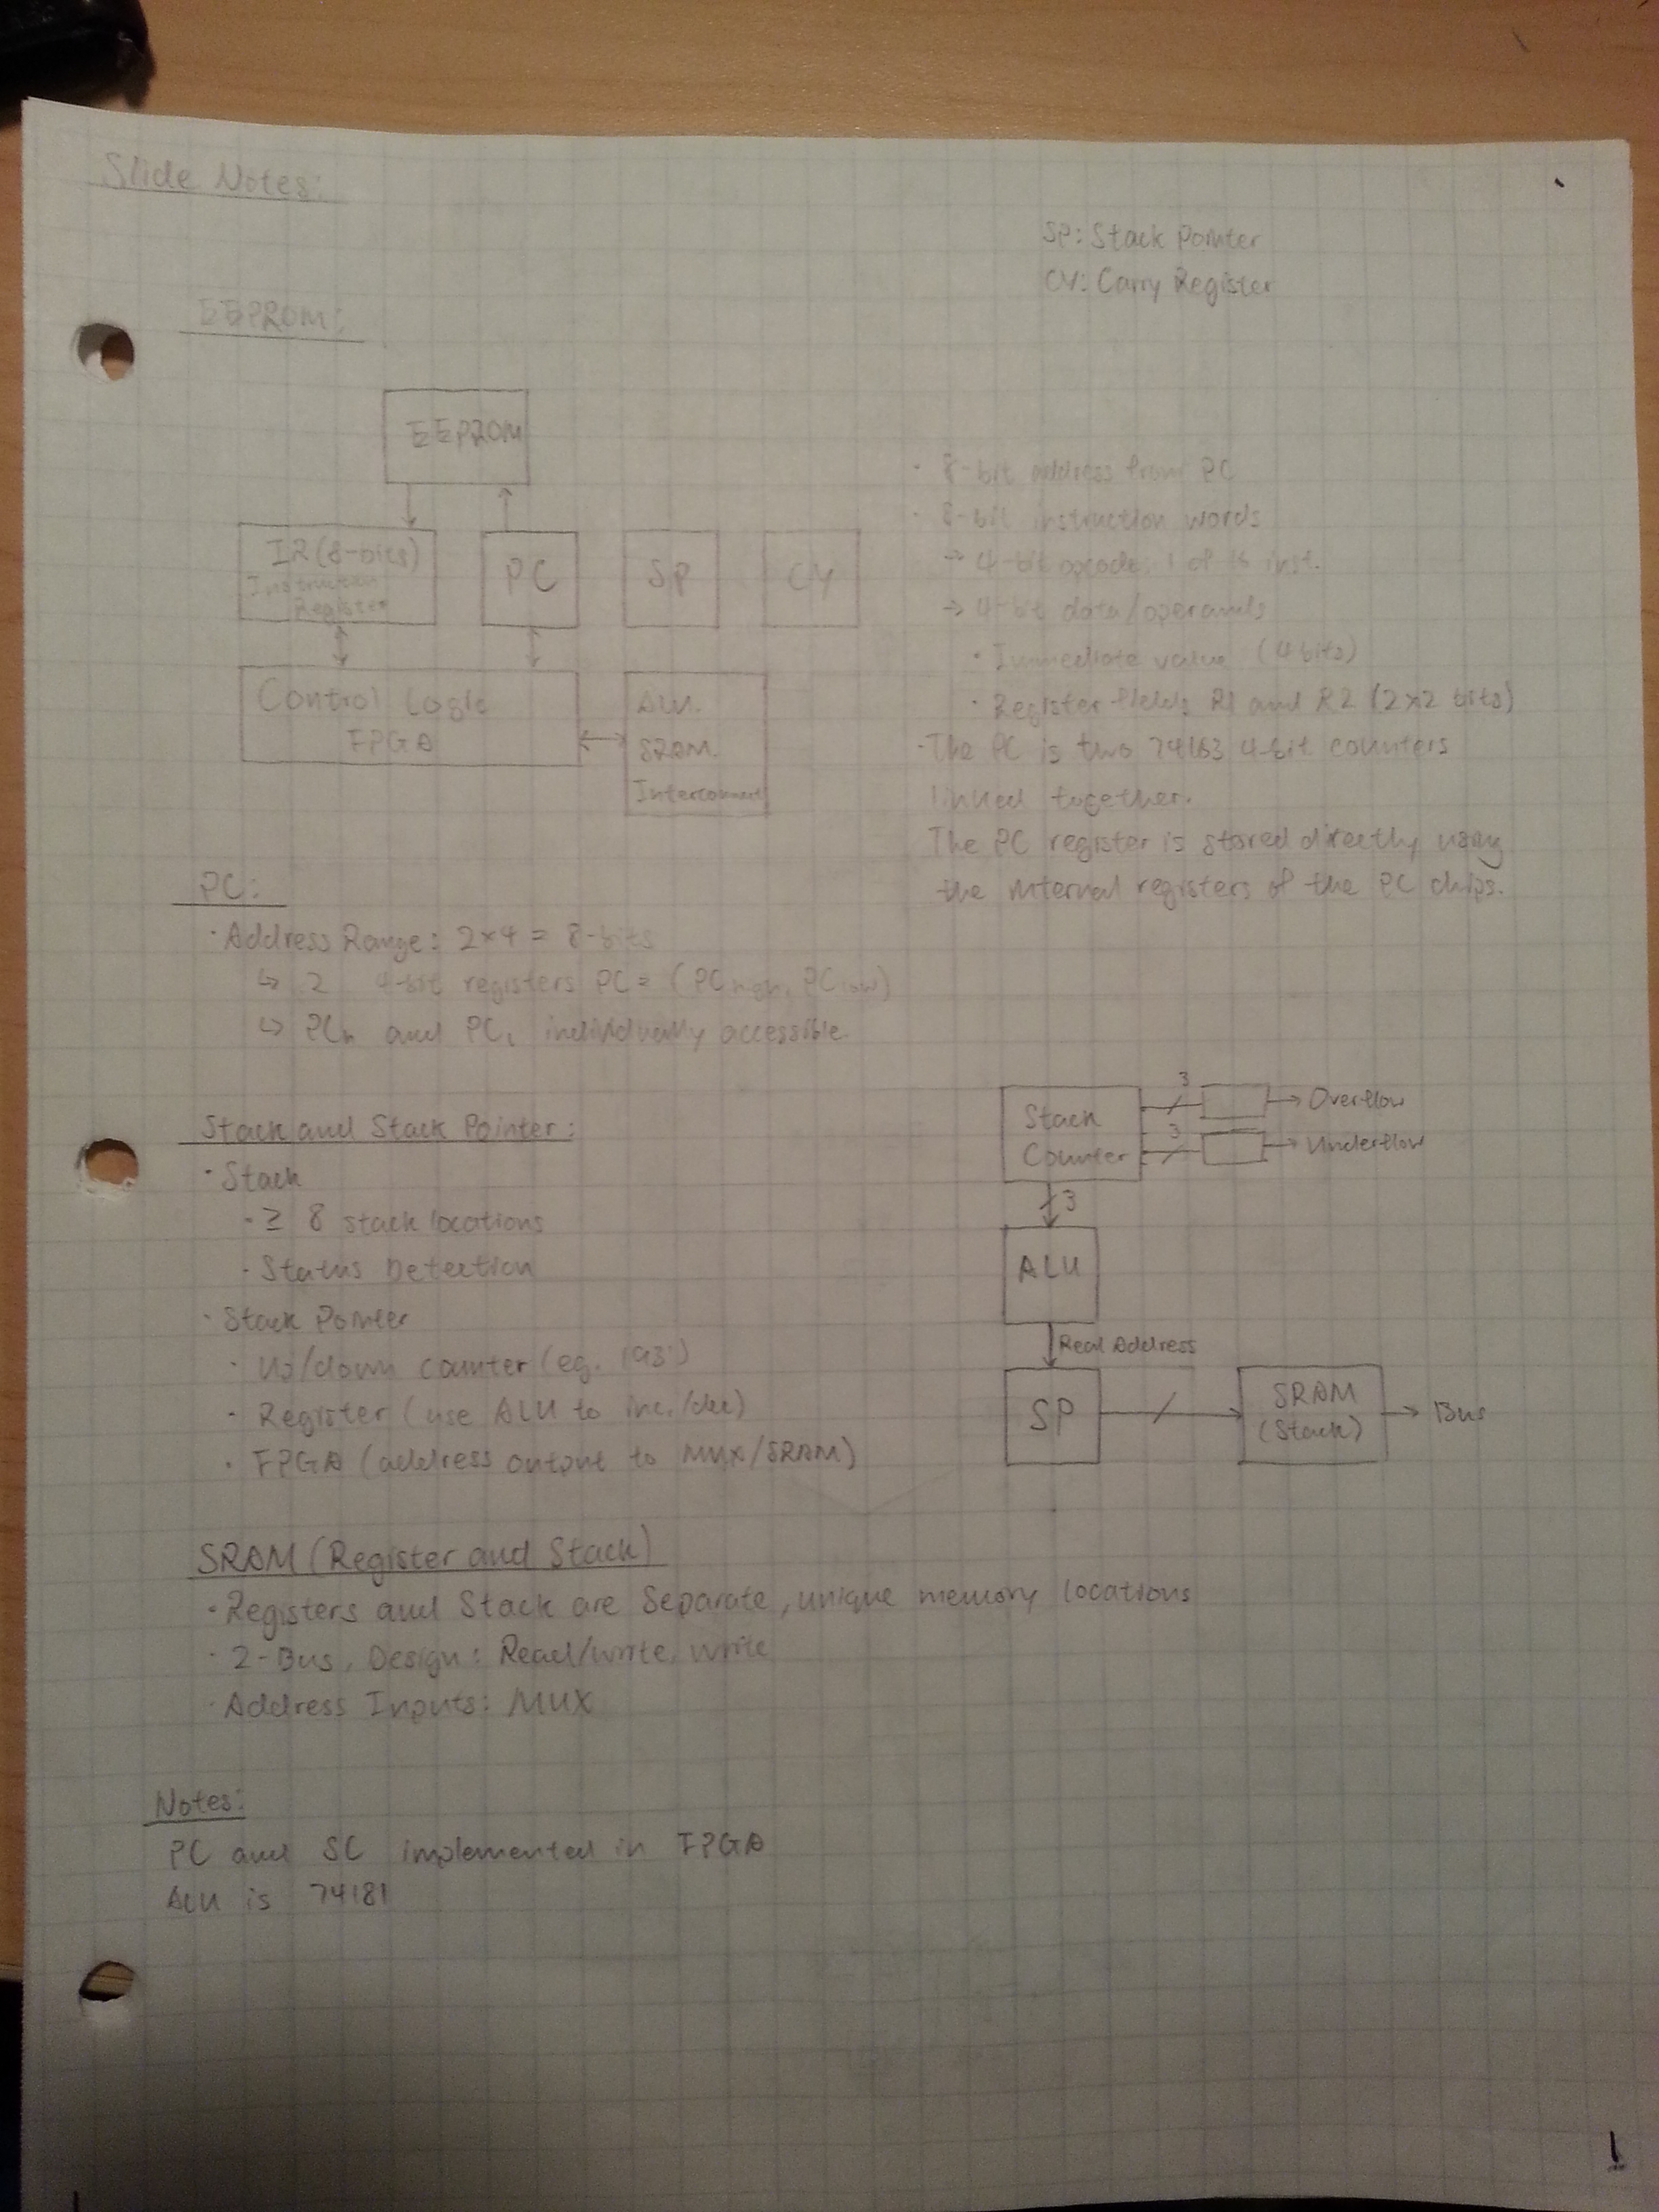 Slide Notes:
SP: Stack Pointer
CY: Carry Register
EEPROM:
EEPROM
IR (8-bits)
Instruction
Register
PC
SP
CY
Control Logic
FPGA
ALU.
SRAM.
Interconnect
· 8-bit address from PC
· 8-bit instruction words
→ 4-bit opcode, 1 of 16 inst.
→ 4-bit data/operands
· Immediate value (4 bits)
· Register fields R1 and R2 (2×2 bits)
· The PC is two 74163 4-bit counters
linked together.
The PC register is stored directly using
the internal registers of the PC chips.
PC:
· Address Range: 2×4 = 8-bits
↳ 2 4-bit registers PC = (PChigh, PClow)
↳ PCh and PCL individually accessible.
Stack and Stack Pointer:
· Stack
· ≥ 8 stack locations
· Status Detection
· Stack Pointer
· Up/down counter (eg. '193')
· Register (use ALU to inc./dec)
· FPGA (address output to MUX/SRAM)
Stack
Counter
3
Overflow
3
Underflow
3
ALU
Real Address
SP
SRAM
(Stack)
Bus
SRAM (Register and Stack)
· Registers and Stack are Separate, unique memory locations
· 2-Bus, Design: Read/write, write
· Address Inputs: MUX
Notes:
PC and SC implemented in FPGA
ALU is 74181
1